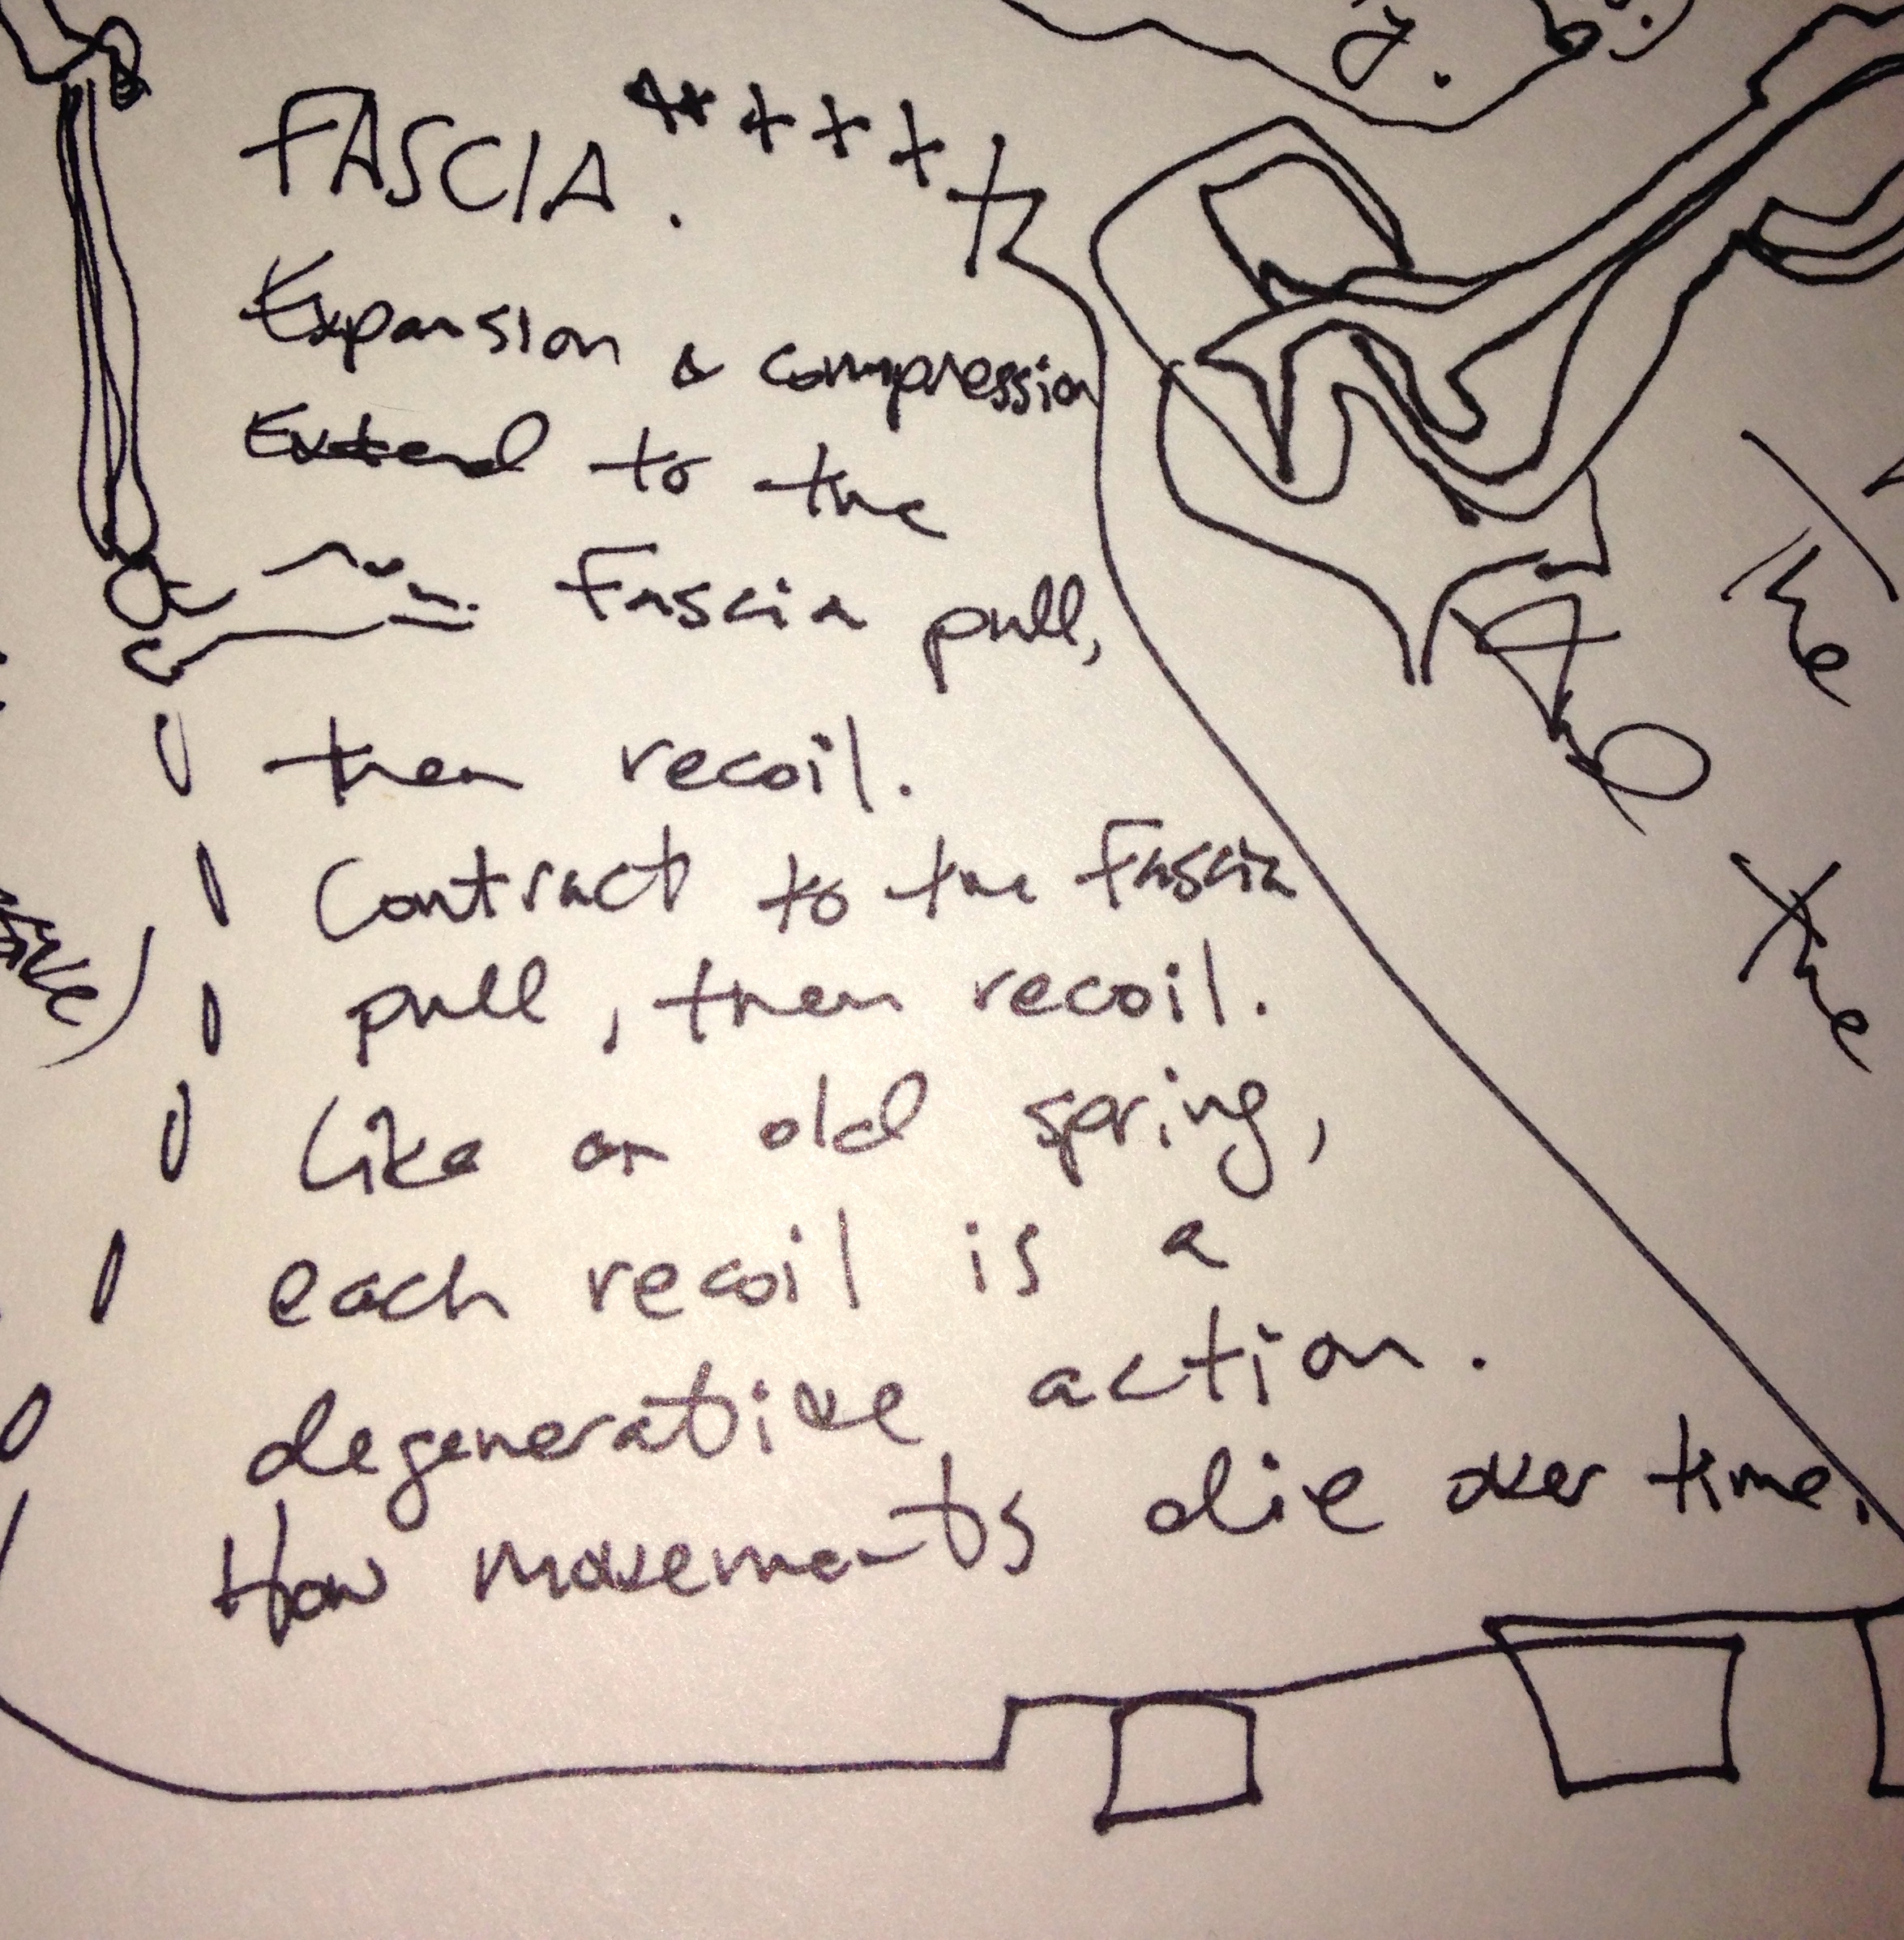 FASCIA.
Expansion & compression
Extend to the
Fascia pull,
then recoil.
Contract to the Fascia
pull, then recoil.
Like an old spring,
each recoil is a
degenerative action.
How movements die over time.
The
the